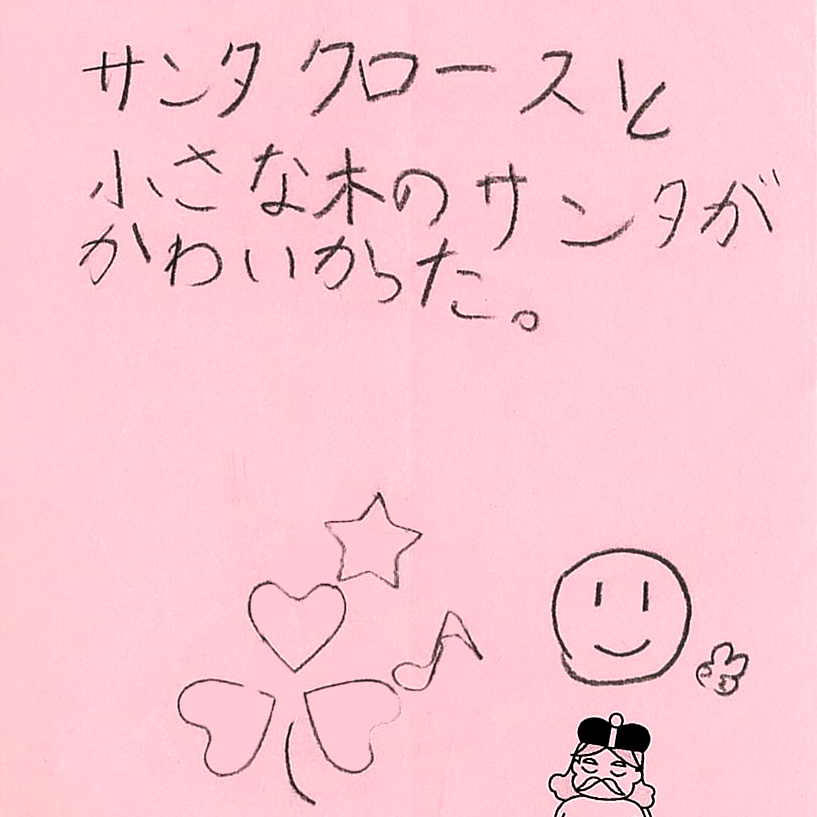 サンタクロースと
小さな木のサンタが
かわいかった。